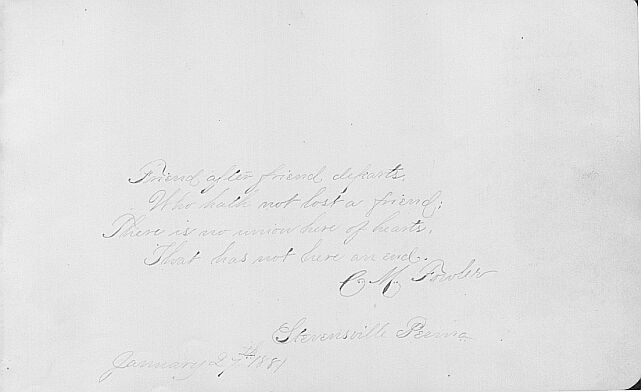 Friend after friend departs,
Who hath not lost a friend;
There is no union here of hearts,
That has not here an end.
C. M. Fowler
Stevensville Penna
January 27th 1881